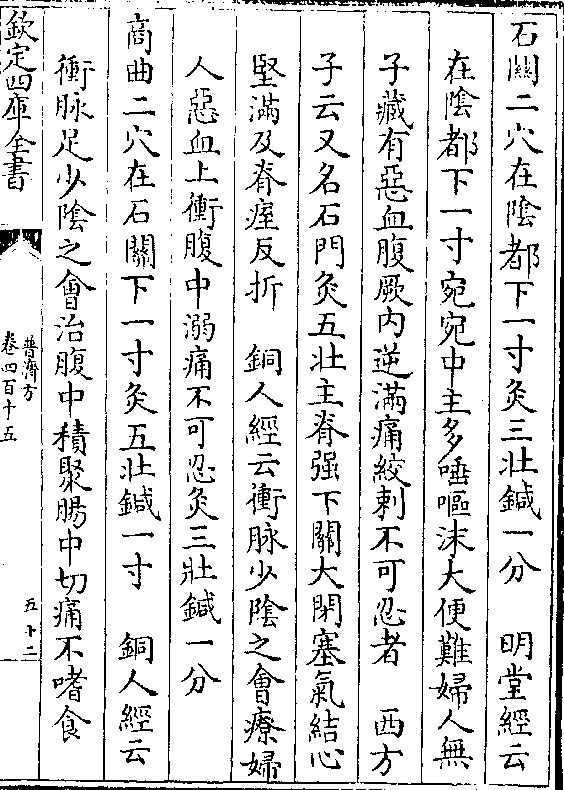 石關二穴在陰都下一寸灸三壯鍼一分　明堂經云
在陰都下一寸宛宛中主多唾嘔沫大便難婦人無
子藏有惡血腹厥内逆滿痛絞刺不可忍者　西方
子云又名石門灸五壯主脊强下關大閉塞氣結心
堅滿及脊痓反折　銅人經云衝脉少陰之會療婦
人惡血上衝腹中溺痛不可忍灸三壯鍼一分
商曲二穴在石關下一寸灸五壯鍼一寸　銅人經云
衝脉足少陰之會治腹中積聚腸中切痛不嗜食
欽定四庫全書
普濟方
卷四百十五
五十二